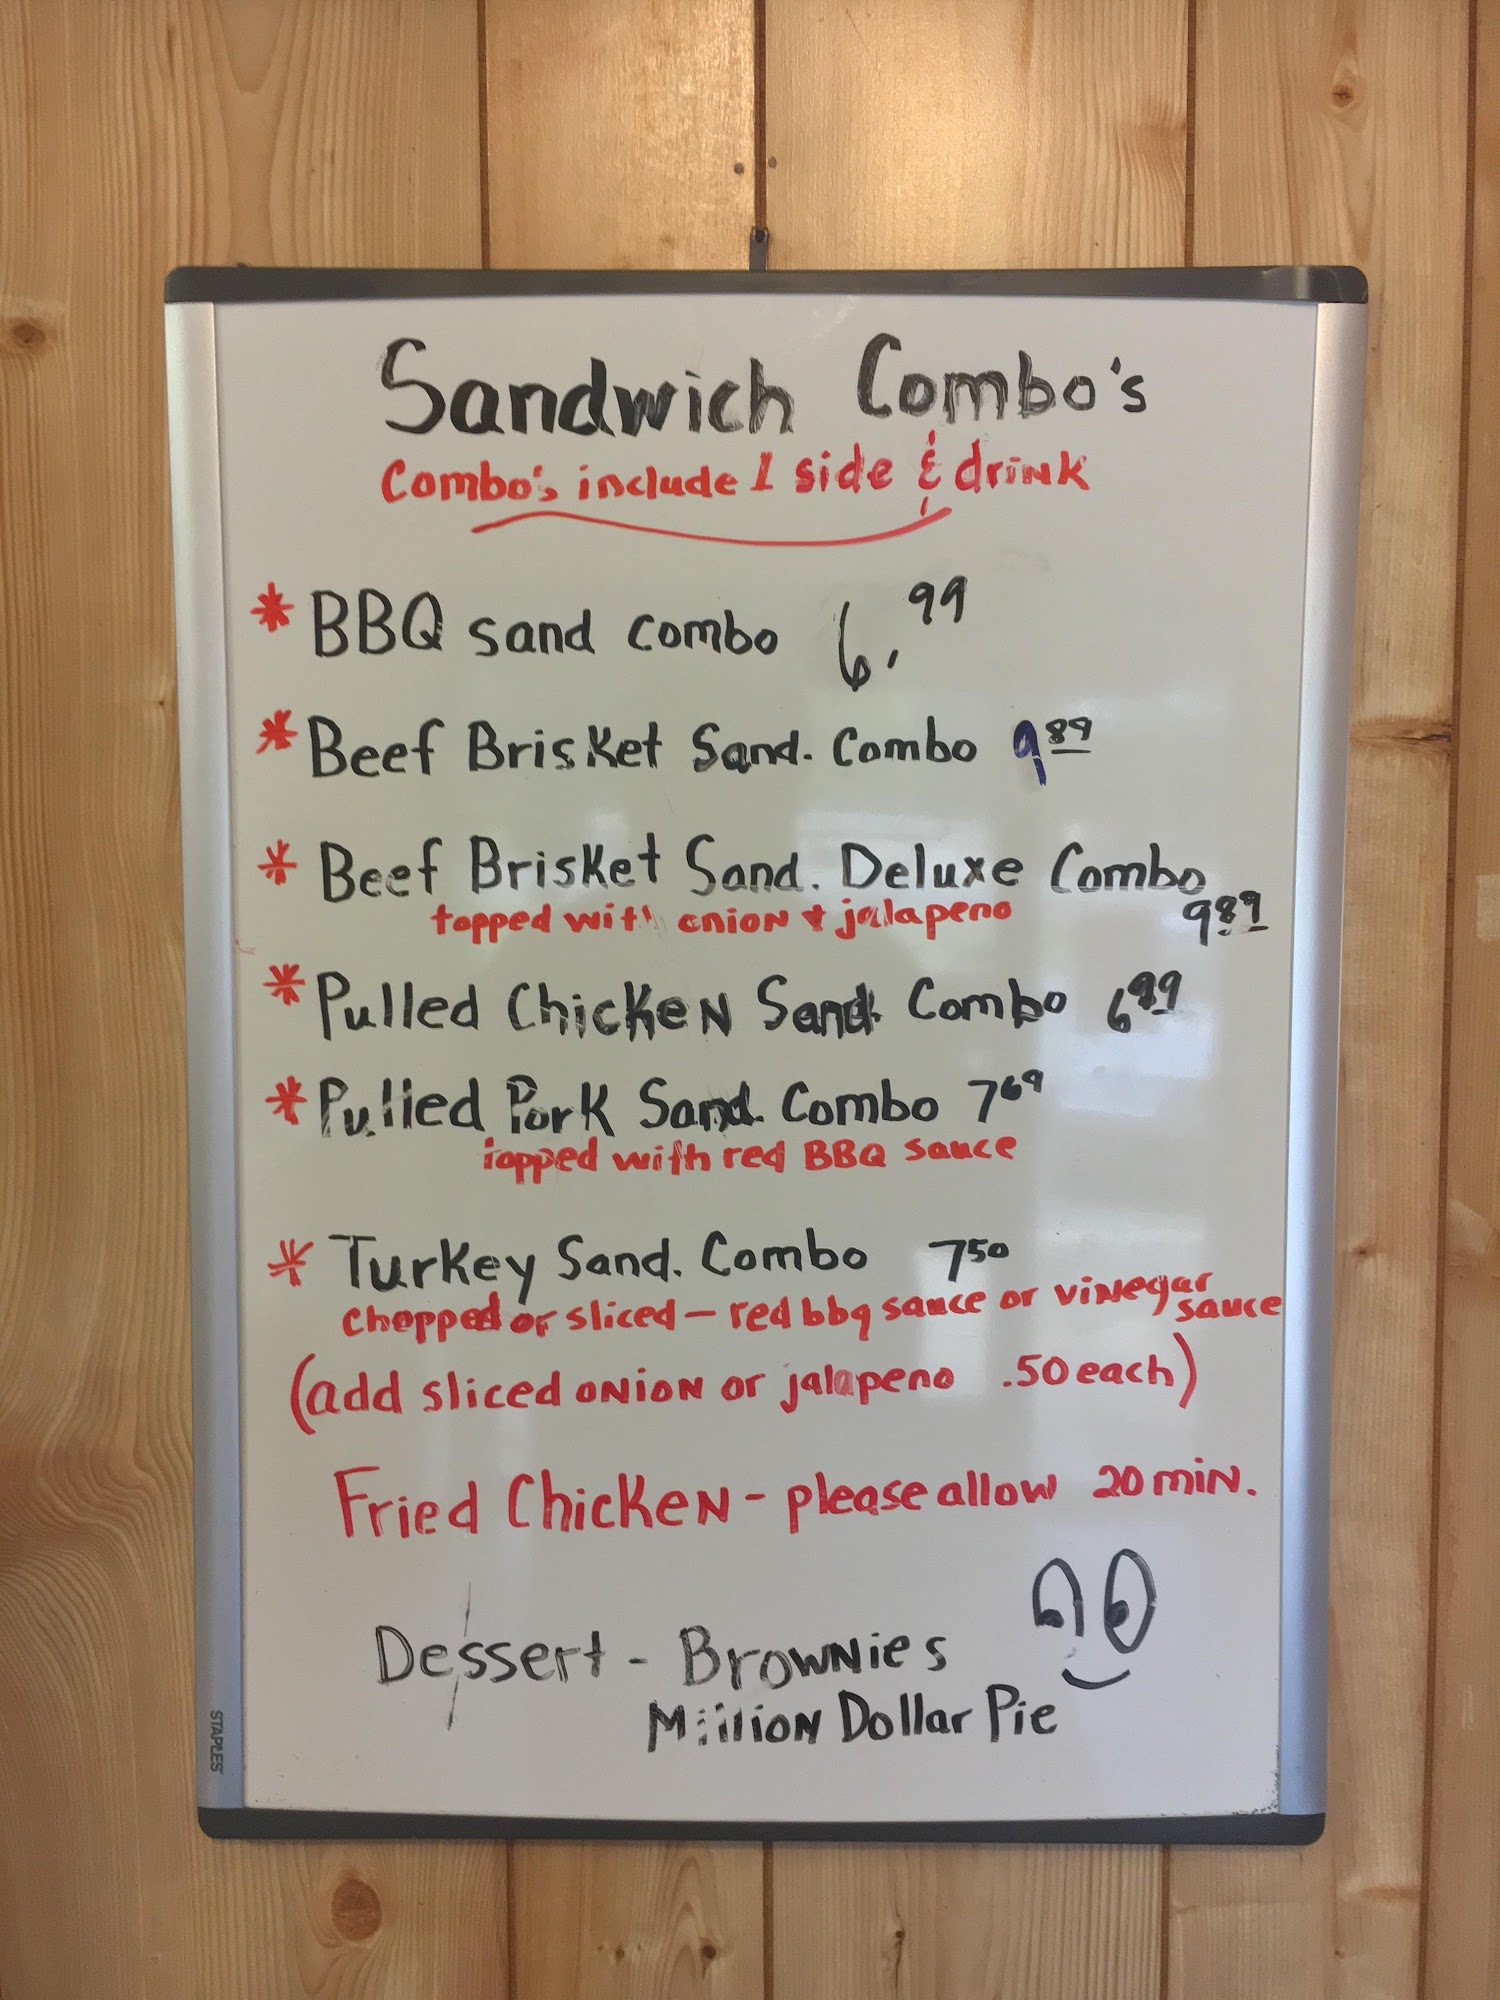 Sandwich Combo's
Combo's include 1 side & drink
* BBQ sand combo 6.99
* Beef Brisket Sand. Combo 9 89
* Beef Brisket Sand. Deluxe Combo
topped with onion + jalapeno 9 89
* Pulled Chicken Sand. Combo 6 99
* Pulled Pork Sand. Combo 7 69
topped with red BBQ sauce
* Turkey Sand. Combo 7 50
chopped or sliced - red bbq sauce or vinegar
sauce
(add sliced onion or jalapeno .50 each)
Fried Chicken - please allow 20 min.
Dessert - Brownies
Million Dollar Pie
STAPLES